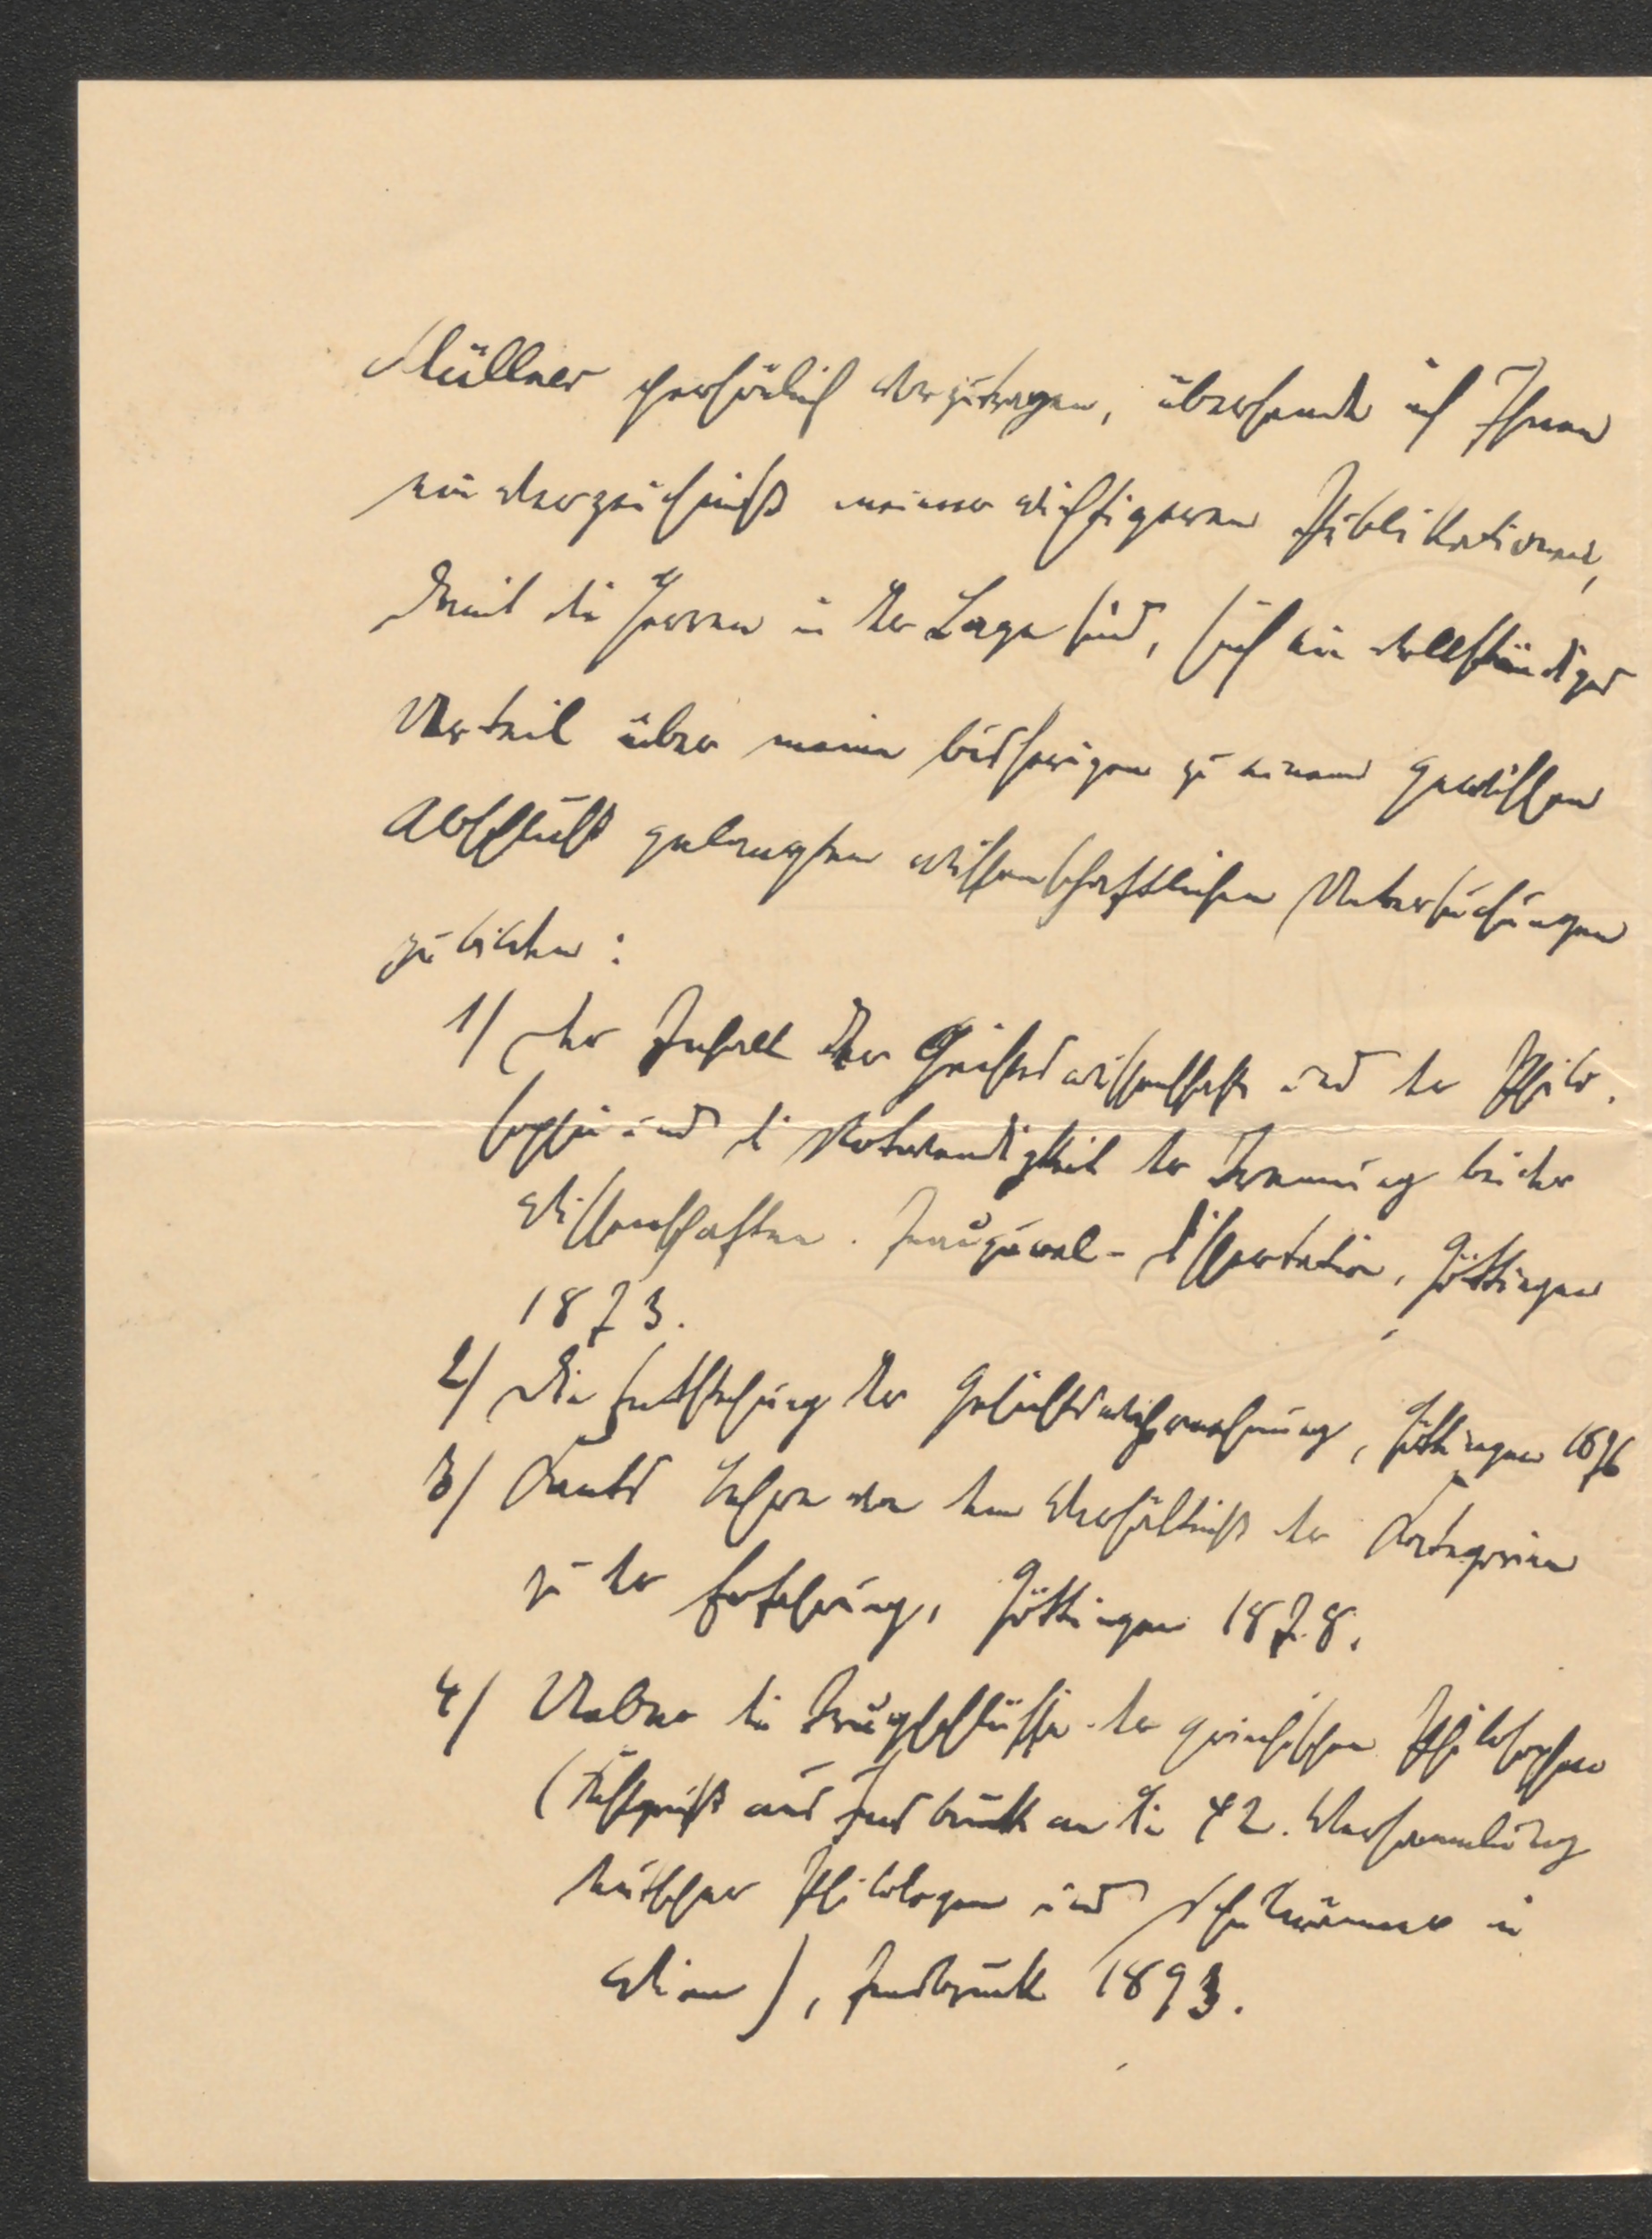 Müllner persönlich vorzutragen, übersende ich Ihnen
ein Verzeichniß meiner wichtigeren Publikationen,
damit die Herren in der Lage sind, sich ein vollständiges
Urteil über meine bisherigen zu einem gewissen
Abschluß gelangten wissenschaftlichen Untersuchungen
zu bilden:
1/ Der Inhalt der Geisteswissenschaft und der Philo-
sophie und die Notwendigkeit der Trennung beider
Wissenschaften. Inaugural-Dissertation, Göttingen
1873.
2/ Die Entstehung der Gesichtswahrnehmung, Göttingen 1876
3/ Kants Lehre von dem Verhältniß der Kategorien
zu der Erfahrung, Göttingen 1878.
4/ Ueber die Trugschlüsse der griechischen Philosophen
(Festgruß aus Innsbruck an die 42. Versammlung
deutscher Philologen und Schulmänner in
Wien), Innsbruck 1893.